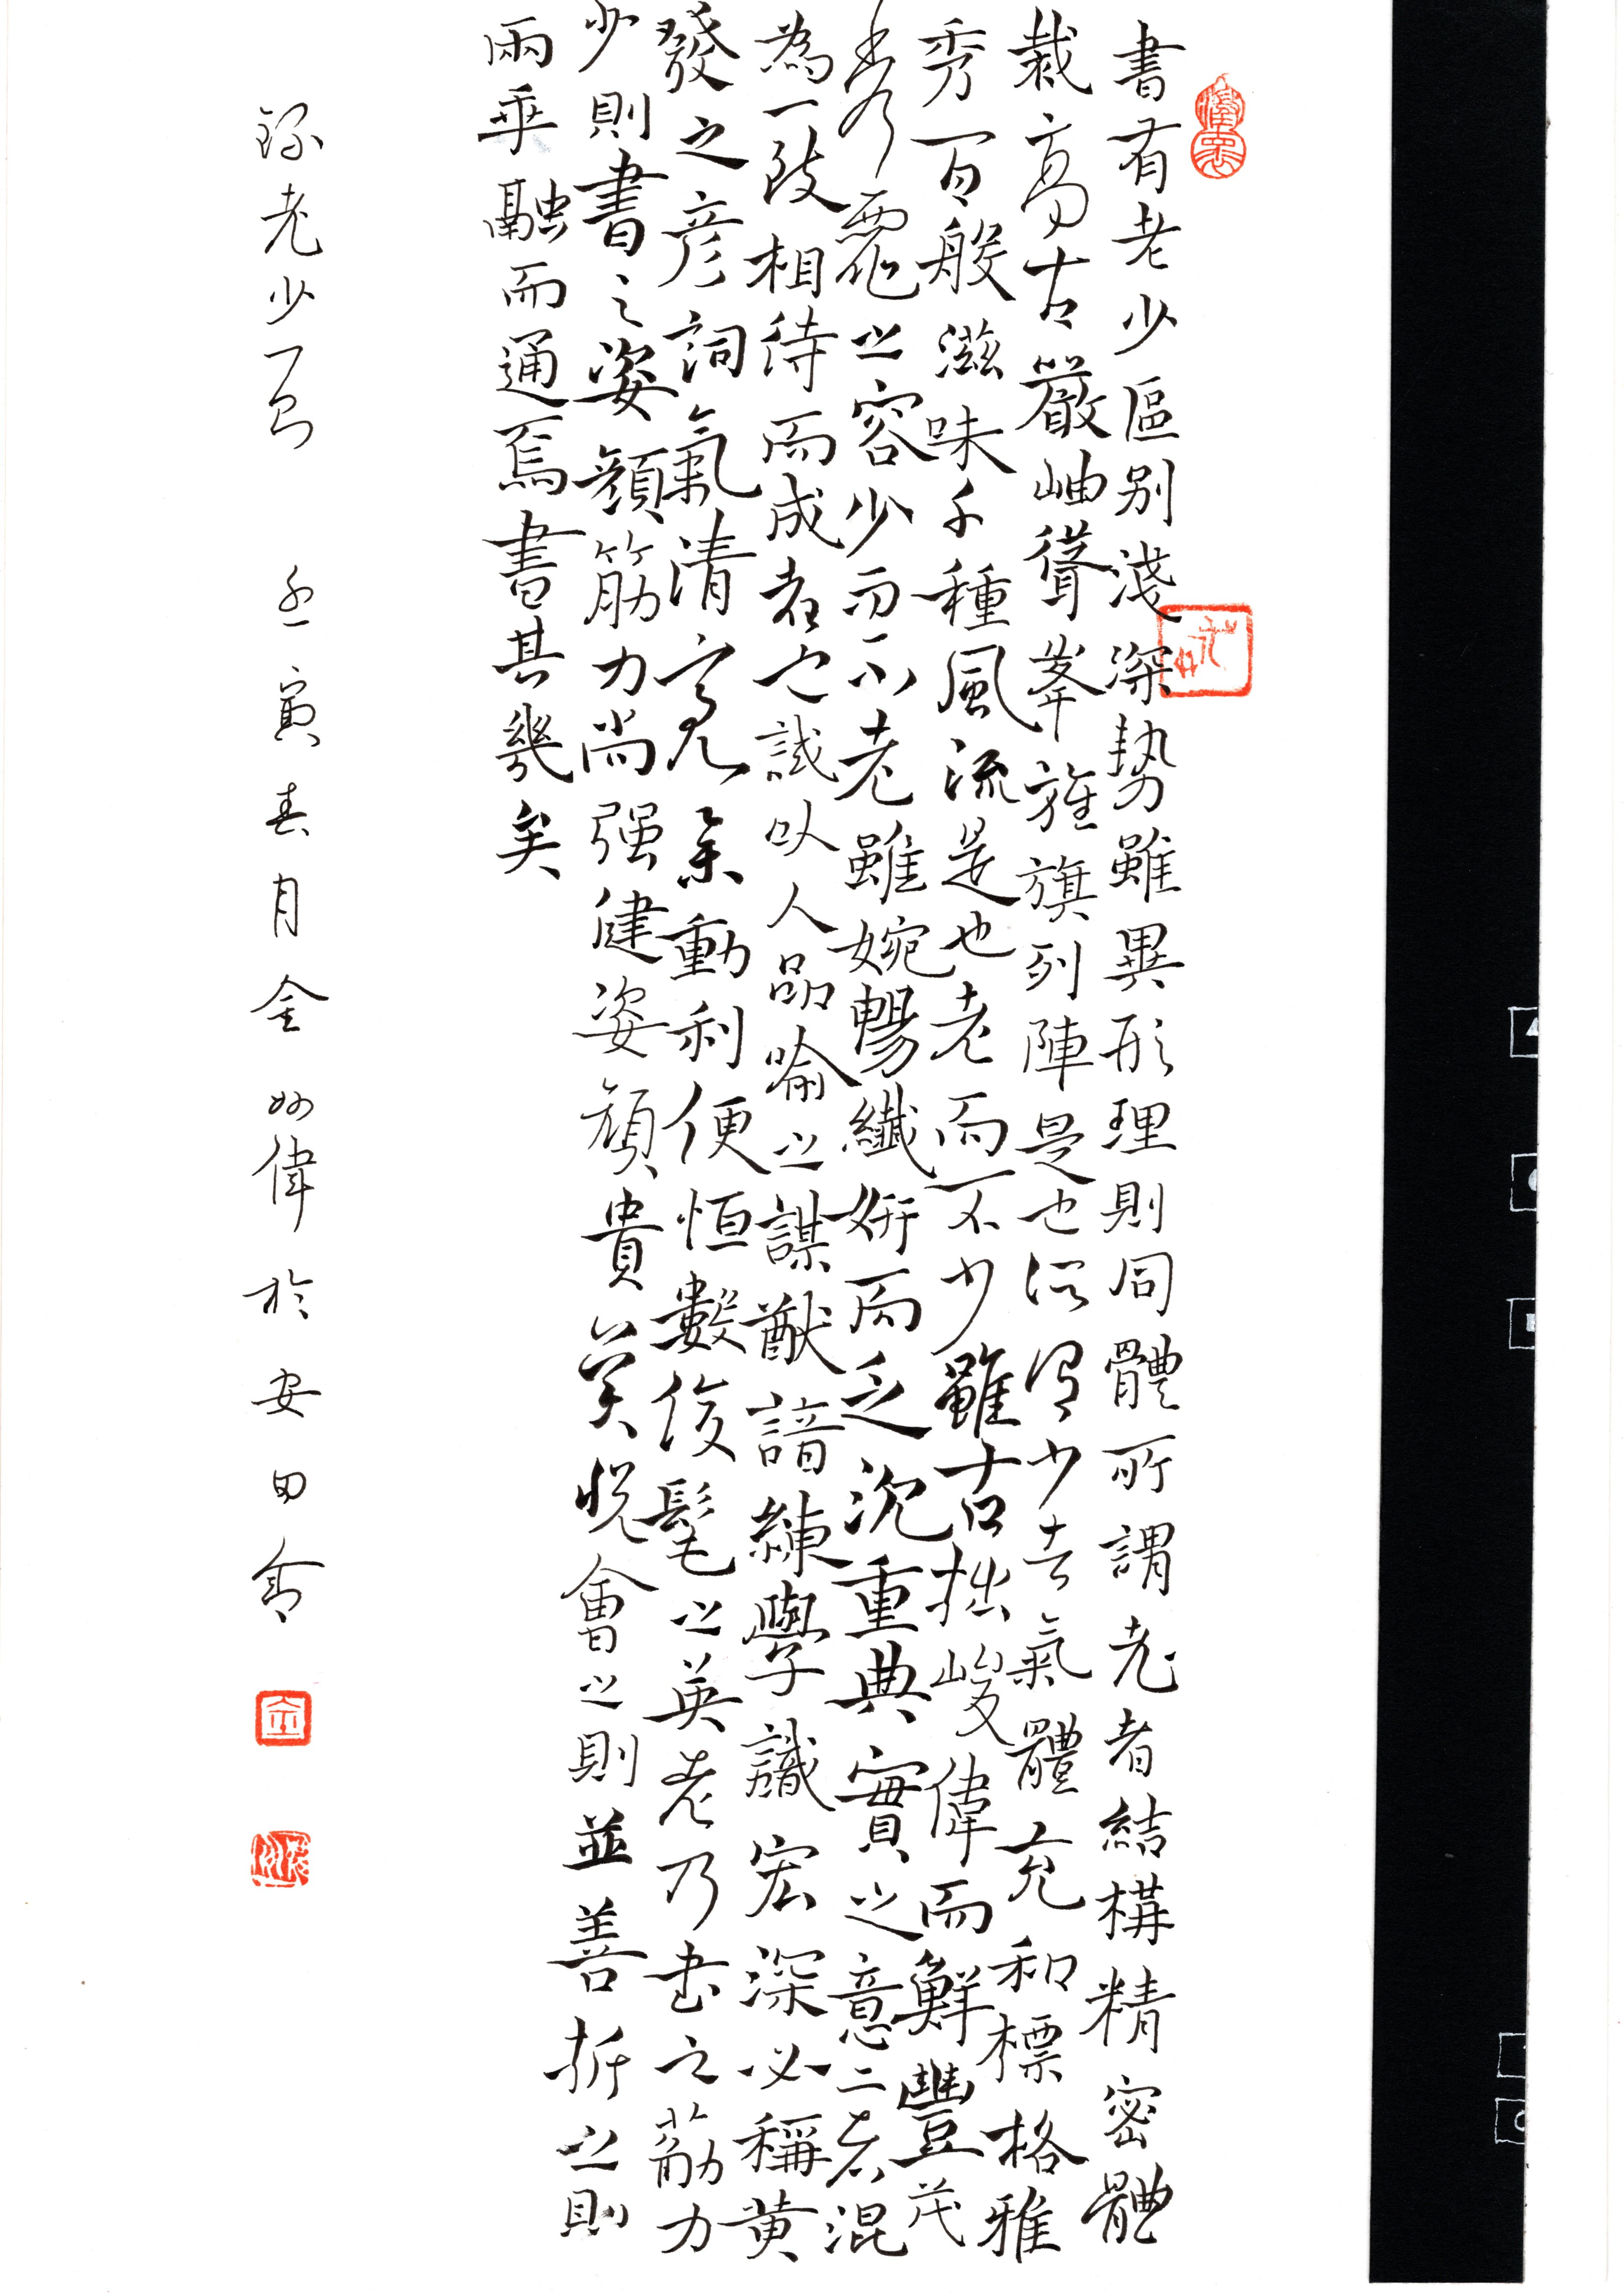 書有老少區別淺深勢雖異形理則同體所謂老者結構精密體
裁高古嚴岫聳峯旌旗列陣是也所謂少者氣體充和標格雅
秀百般滋味千種風流是也老而不少雖古拙峻偉而鮮豐茂
秀麗之容少而不老雖婉暢纖妍而乏沉重典實之意二者混
為一致相待而成者也試以人品喻之謀猷諳練學識宏深必稱黃
發之彥詞氣清亮舉動利便恒數俊髦之英老乃書之筋力
少則書之姿顏筋力尚强健姿顏貴美悅會之則並善折之則
兩乖融而通焉書其幾矣
錄老少一節 壬寅春月金妙偉於安田舍